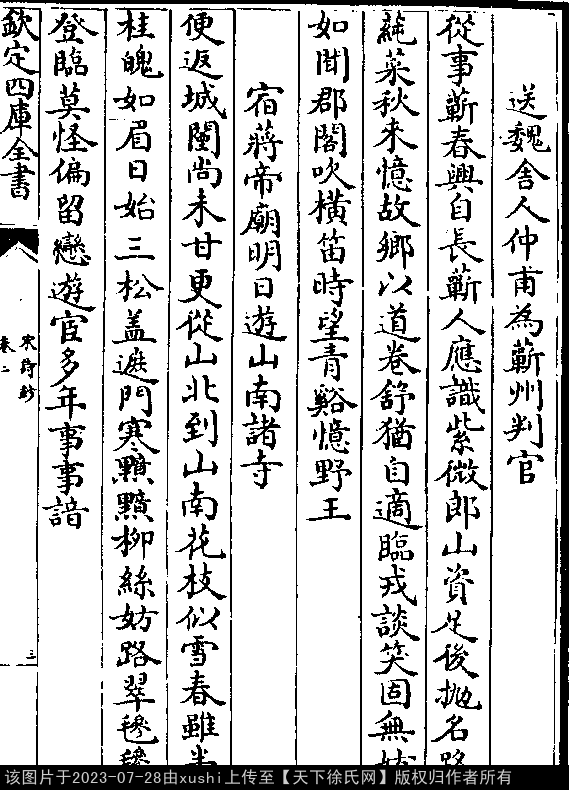 送魏舍人仲甫為蘄州判官
從事蘄春興自長蘄人應識紫微郎山資足後抛名
蒓菜秋来憶故鄉以道卷舒猶自適臨戎談笑固無
如聞郡閣吹横笛時望青谿憶野王
宿蔣帝廟明日遊山南諸寺
便返城闉尚未甘更從山北到山南花枝似雪春雖
桂魄如眉日始三松盖遮門寒黯黯柳絲妨路翠毿毿
登臨莫怪偏留戀遊宦多年事事諳
欽定四庫全書
宋詩鈔
卷二
三
该图片于2023-07-28由xushi上传至【天下徐氏网】版权归作者所有